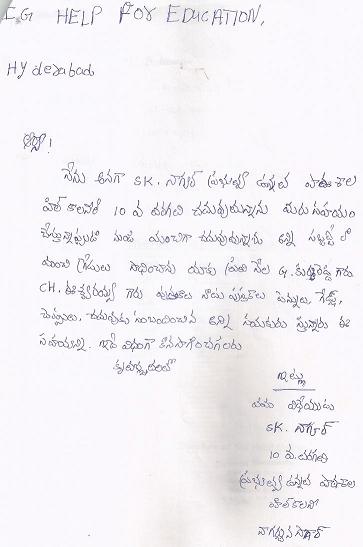 I.G HELP FOR EDUCATION,
Hyderabad
అయ్యా!
నేను అనగా SK. నాగూర్ ప్రభుత్వ ఉన్నత పాఠశాల
హిల్ కాలనీలో 10 వ తరగతి చదువుచున్నాను మీరు సహాయం
చేస్తున్నప్పటి నుండి మంచిగా చదువుచున్నాను అన్ని సబ్జెక్ట్ లో
మంచి గ్రేడులు సాధించాను మాకు ప్రతి నెల G. గారు
CH. ఈశ్వరయ్య గారు వచ్చి నాకు పుస్తకాలు పెన్నులు, గేమ్స్,
చెప్పులు, చదువుకు సంబంధించిన అన్ని ఈ
సహాయాన్ని ఇదే విధంగా కొనసాగించగలరు
కృతజ్ఞతలతో
ఇట్లు
తమ విధేయుడు
SK. నాగూర్
10 వ తరగతి
ప్రభుత్వ ఉన్నత పాఠశాల
హిల్ కాలనీ
నాగార్జున సాగర్